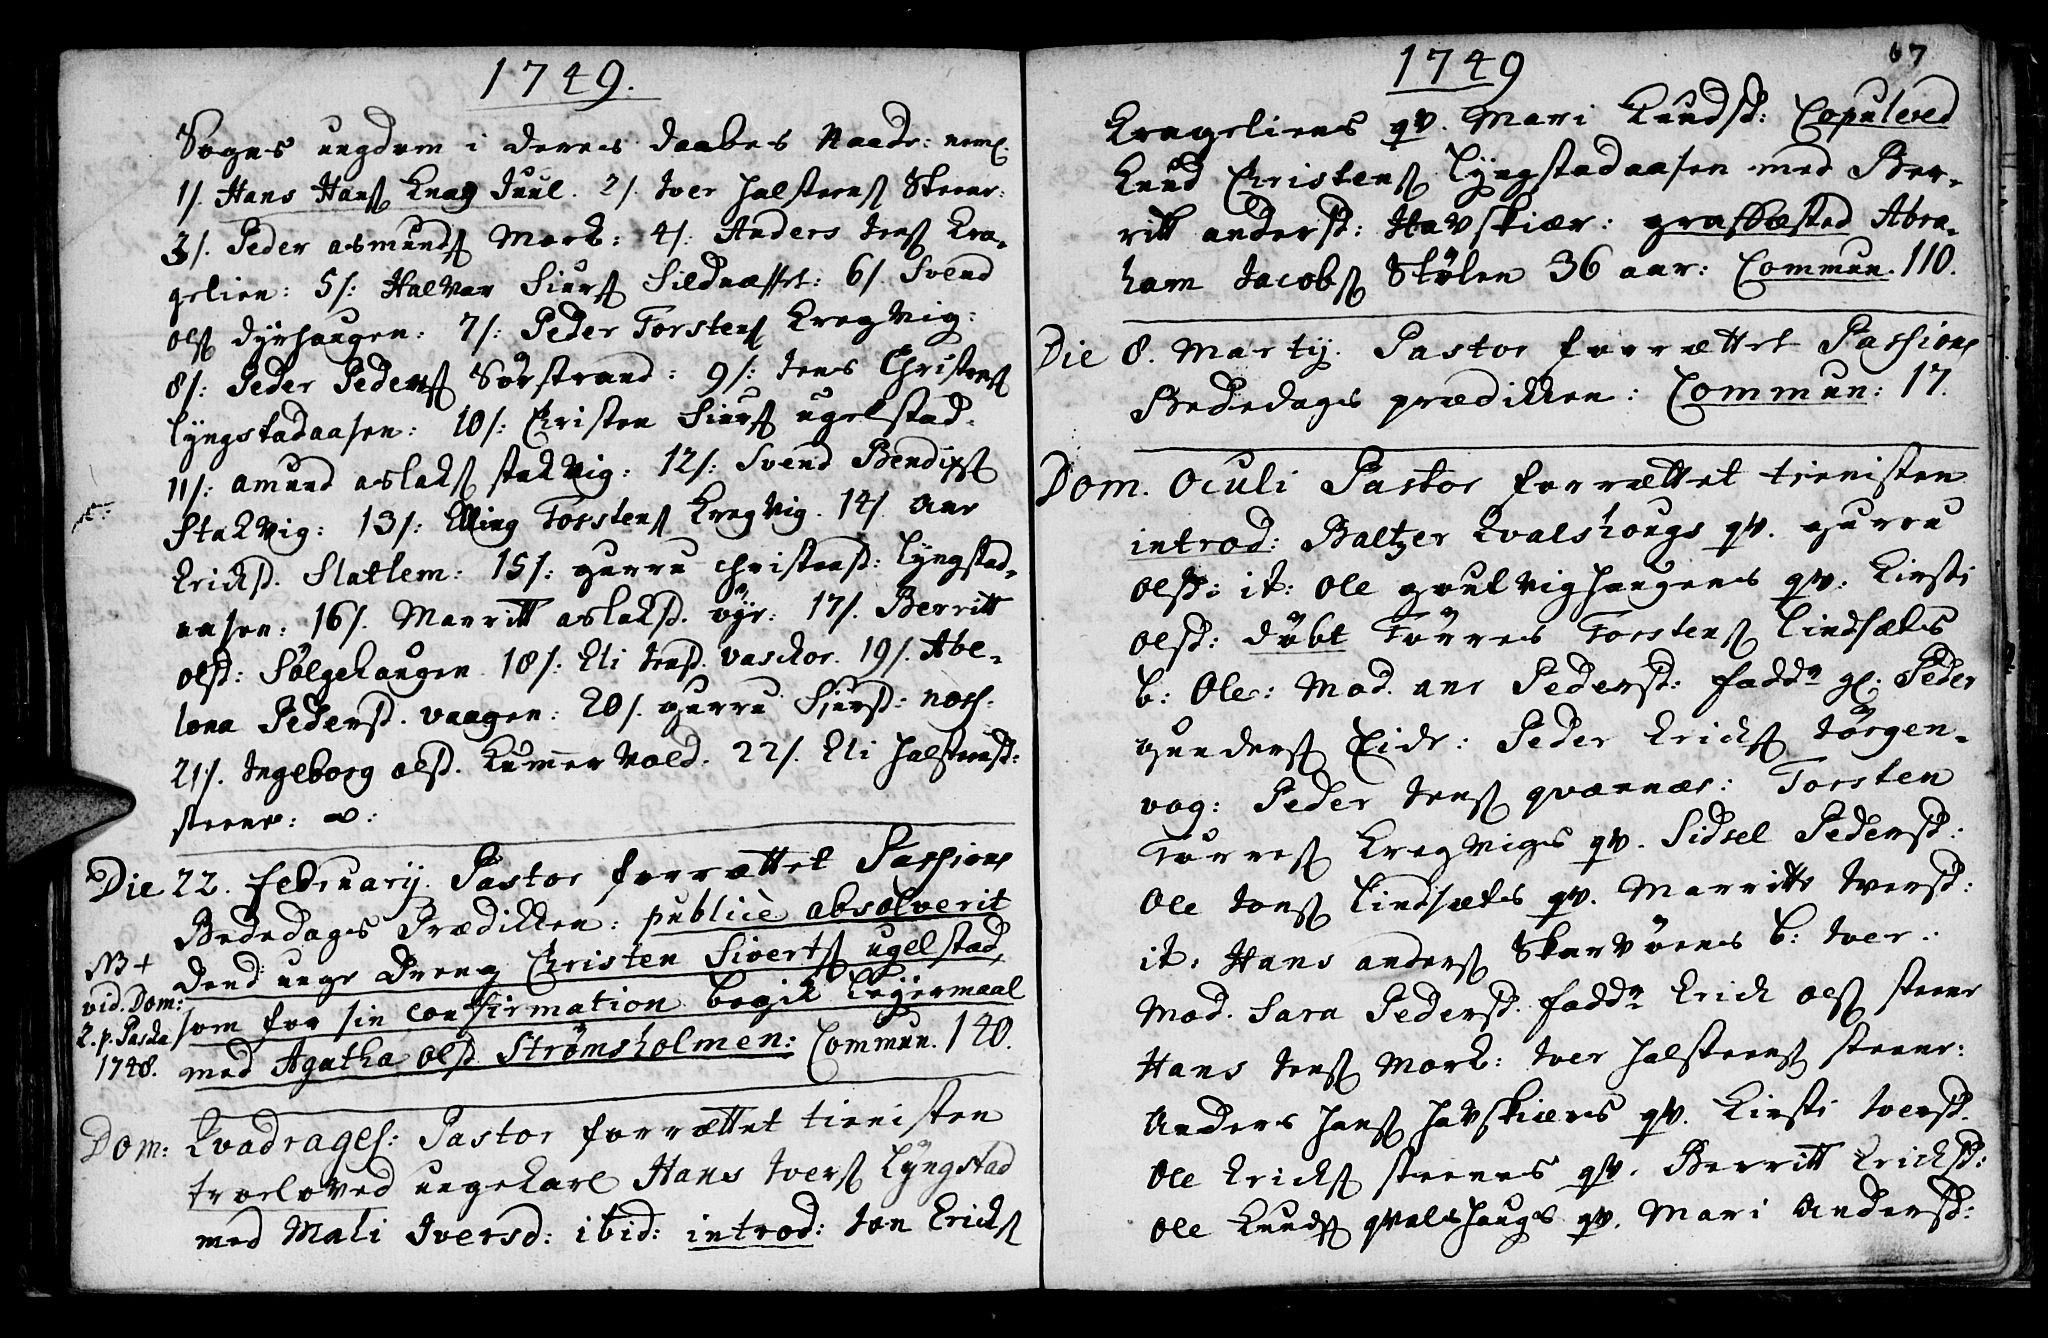 1749.
Sogns ungdom i deres daabes Naade: neml.
1/. Hans Hans Knag Juul. 2/. Iver Halsteens Steene:
3/. Peder Asmunds Mork: 4/. Anders Jens Kra-
gelien: 5/: Halvar Siurs Sildnæsset: 6/. Svend
Ols Dyrhaugen: 7/: Peder Torstens Kregvig:
8/: Peder Peders Sørstrand: 9/: Jens Christens
Lyngstadaasen: 10/: Christen Siurs Ugelstad.
11/: Amund Aslaks Stakvig: 12/: Svend Bendixs
Stakvig: 13/: Elling Torstens Kregvig. 14/. Ane
Ericksd. Slatlem: 15/: Gurru Christensd: Lyngstad-
aasen: 16/. Marritt Aslaksd. Øyr: 17/. Berritt
Olsd: Sølgehaugen 18/: Eli Jensd. Vaskor. 19/. Abe-
lona Pedersd. Vaagen: 20/. Gurru Sjursd: Nces:
21/. Ingeborg Olsd. Kumervold. 22/. Eli Halsteensd:
Steene:
Die 22. February. Pastor forrættet Passions
Bededags Prædikken: publicè absolverit
NB+ dend unge Dreng Christen Siverts Ugelstad,
vid. Dom: som for sin confirmation begik Leyermaal
2. p. Pascha 1748. med Agatha Olsd Strømsholmen: Commun. 140.
Dom: Qvadrages: Pastor forrættet tienisten
troeloved ungekarl Hans Ivers Lyngstad
med Mali Iversd: ibid: introd: Jon Ericks
1749
67
Kragliens qv. Mari Knudsd: Copulered
Knud Christens Lyngstadaasen med Ber-
ritt Andersd: Havskiær: grafkæsted Abra-
ham Jacobs Stølen 36 aar: Commun. 110.
Die 8. Martij. Pastor forrættet Passions
Bededags prædikken: Commun: 17.
Dom. Oculi Pastor forrættet tienisten
introd: Baltzer Kvalshougs qv. Gurru
Olsd: it: Ole Goulvighaugens qv. Kirsti
Olsd: døbt Tørres Torstens Lindsæts
b: Ole: Mod. Ane Pedersd: fadd. gl. Peder
Gunders Eide: Peder Ericks Jørgen-
vog: Peder Jens Qvænnæs: Torsten
Tørres Kregvigs qv. Sidsel Pedersd:
Ole Jons Lindsæts qv. Marritte Iversd:
it: Hans Anders Skarvøens b: Iver:
Mod. Sara Pedersd. fadd. Erick Ols Steene
Hans Jens Mork: Iver Halsteens Steene:
Anders Hans Havskiærs qv. Kirsti Iversd.
Ole Ericks Steenes qv. Berritt Ericksd:
Ole Knuds Qvalshaugs qv. Mari Andersd: